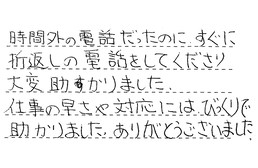 時間外の電話だったのに すぐに
折返しの電話をしてくださり
大変助すかりました.
仕事の早さや対応には びっくりで
助かりました. ありがとうございました